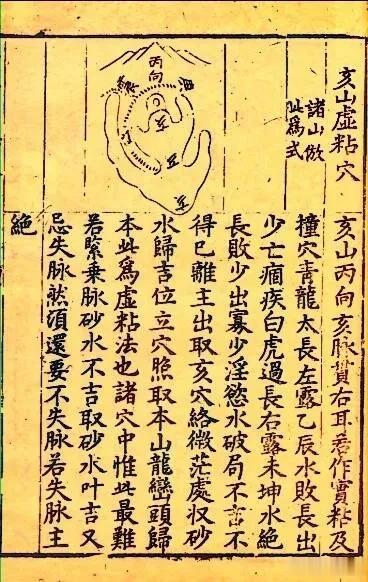 亥山虛粘穴
諸山倣
此爲式
丙向
亥山丙向亥脉貫右耳若作實粘及
撞穴青龍太長左露乙辰水敗長出
少亡痼疾白虎過長右露未坤水絶
長敗少出寡少淫慾水破局不吉不
得已離主出取亥穴絡微茫處収砂
水歸吉位立穴照取本山龍巒頭歸
本此爲虛粘法也諸穴中惟此最難
若緊乗脉砂水不吉取砂水叶吉又
忌失脉然須還要不失脉若失脉主
絶